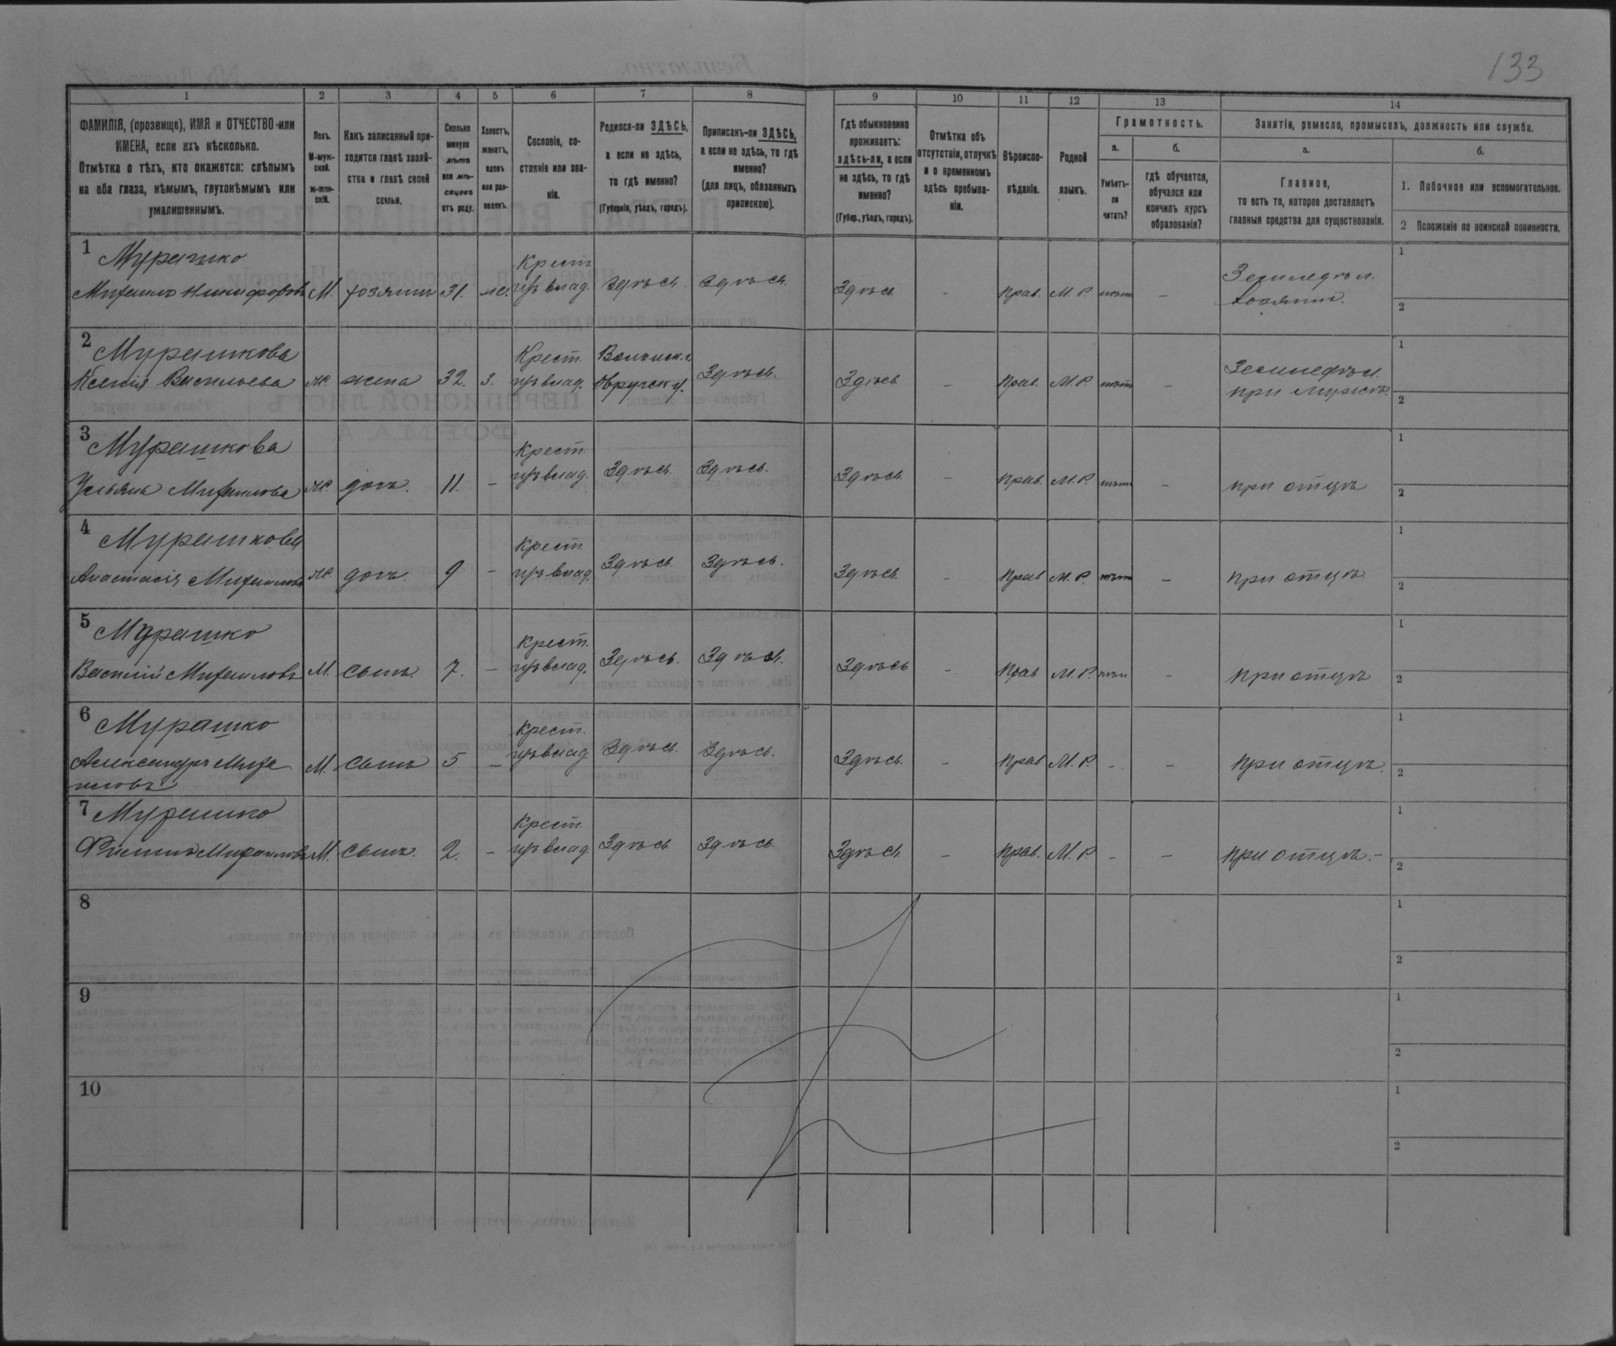 133
1 2 3 4 5 6 7 8 9 10 11 12 13 14
ФАМИЛІЯ, (прозвище), ИМЯ и ОТЧЕСТВО или
ИМЕНА, если ихъ нѣсколько.
Отмѣтка о тѣхъ, кто окажется: слѣпымъ
на оба глаза, нѣмымъ, глухонѣмымъ или
умалишеннымъ.
Полъ.
М-муж-
ской.
Ж-жен-
скій.
Какъ записанный при-
ходится главѣ хозяй-
ства и главѣ своей
семьи.
Сколько
минуло
лѣтъ
или мѣ-
сяцевъ
отъ роду.
Холостъ,
женатъ,
вдовъ
или раз-
веденъ.
Сословіе, со-
стояніе или зва-
ніе.
Родился-ли ЗДѢСЬ,
а если не здѣсь,
то гдѣ именно?
(Губернія, уѣздъ, городъ).
Приписанъ-ли ЗДѢСЬ,
а если не здѣсь, то гдѣ
именно?
(для лицъ, обязанныхъ
припискою).
Гдѣ обыкновенно
проживаетъ:
здѣсь-ли, а если
не здѣсь, то гдѣ
именно?
(Губер., уѣздъ, городъ).
Отмѣтка объ
отсутствіи, отлучкѣ
и о временномъ
здѣсь пребыва-
ніи.
Вѣроиспо-
вѣданіе.
Родной
языкъ.
Грамотность.
а.
Умѣетъ-
ли
читать?
б.
гдѣ обучается,
обучался или
кончилъ курсъ
образованія?
Занятіе, ремесло, промыселъ, должность или служба.
а.
Главное,
то есть то, которое доставляетъ
главныя средства для существованія.
б.
1. Побочное или вспомогательное.
2 Положеніе по воинской повинности.
1 Мурашко
Михаилъ Никифоровъ М. хозяинъ 31. ж. Крест. из влад. Здѣсь Здѣсь Здѣсь - прав. М.Р. нѣтъ - Земледѣл. хозяинъ. 1 2
2 Мурашкова
Ксенія Васильева ж. жена 32. з. Крест. из влад. Волынск. Овручск. у. Здѣсь. Здѣсь - прав. М.Р. нѣтъ Земледѣл. при мужѣ 1 2
3 Мурашкова
Ульяна Михаилова ж. дочь. 11. - Крест. из влад. Здѣсь Здѣсь. Здѣсь - прав. М.Р. нѣтъ - при отцѣ 1 2
4 Мурашкова
Анастасія Михаилова ж. дочь. 9 - Крест. из влад. Здѣсь Здѣсь. Здѣсь - прав М.Р. нѣтъ - при отцѣ 1 2
5 Мурашко
Василій Михаиловъ М. сынъ. 7. - Крест. из влад. Здѣсь. Здѣсь. Здѣсь - Прав М.Р. нѣтъ - при отцѣ 1 2
6 Мурашко
Александръ Миха
иловъ М. сынъ 5 - Крест. из влад Здѣсь Здѣсь. Здѣсь - прав М.Р. - - при отцѣ. 1 2
7 Мурашко
Филипъ Михаиловъ М. сынъ. 2. - Крест. из влад Здѣсь Здѣсь Здѣсь - прав. М.Р. - - при отцѣ.- 1 2
8 1 2
9 1 2
10 1 2